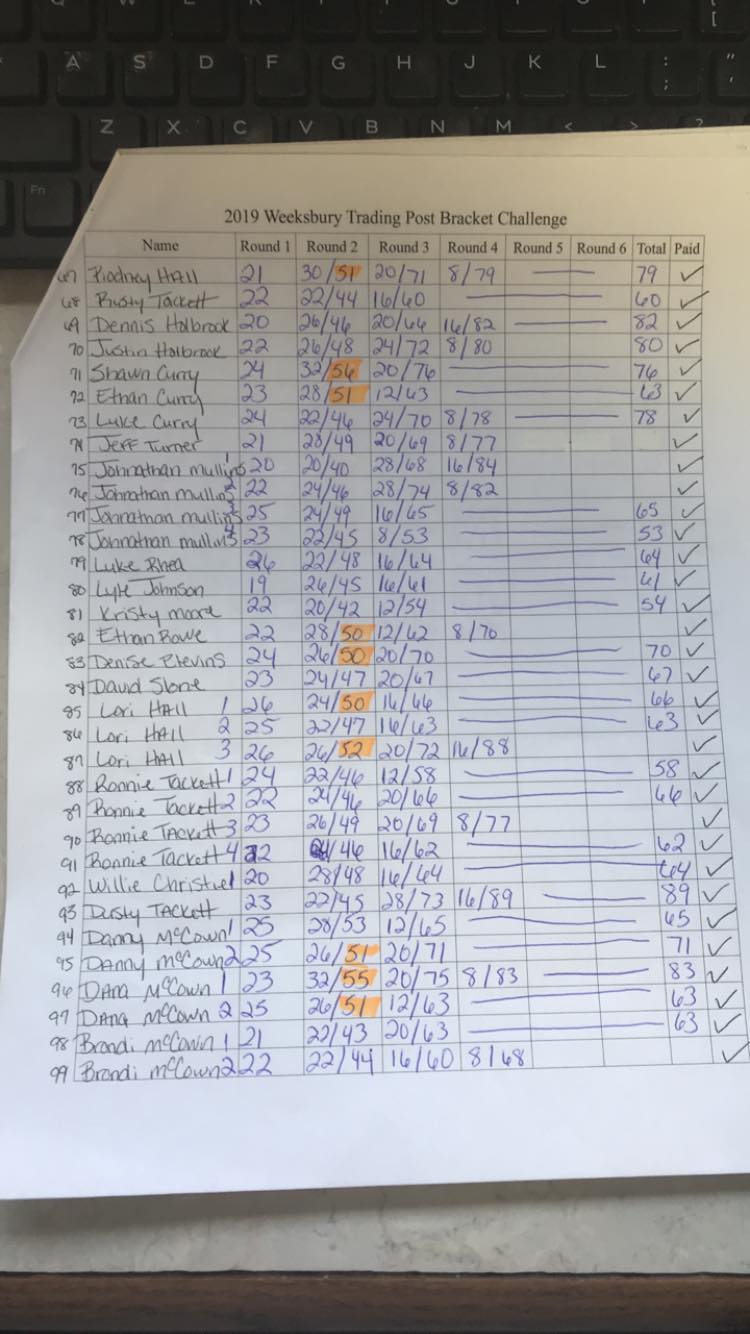 Q W E R T Y U I O P [
A S D F G H J K L : ; "
Z X C V B N M < > ?
Fn
2019 Weeksbury Trading Post Bracket Challenge
Name Round 1 Round 2 Round 3 Round 4 Round 5 Round 6 Total Paid
67 Rodney Hall 21 30/51 20/71 8/79 79 ✓
68 Rusty Tackett 22 22/44 16/60 60 ✓
69 Dennis Holbrook 20 26/46 20/66 16/82 82 ✓
70 Justin Holbrook 22 26/48 24/72 8/80 80 ✓
71 Shawn Curry 24 32/56 20/76 76 ✓
72 Ethan Curry 23 28/51 12/63 63 ✓
73 Luke Curry 24 22/46 24/70 8/78 78 ✓
74 Jeff Turner 21 28/49 20/69 8/77 ✓
75 Johnathan mullins 1 20 20/40 28/68 16/84 ✓
76 Johnathan mullins 2 22 24/46 28/74 8/82 ✓
77 Johnathan mullins 3 25 24/49 16/65 65 ✓
78 Johnathan mullins 4 23 22/45 8/53 53 ✓
79 Luke Rhea 26 22/48 16/64 64 ✓
80 Lyle Johnson 19 26/45 16/61 61 ✓
81 Kristy moore 22 20/42 12/54 54 ✓
82 Ethan Bowe 22 28/50 12/62 8/70 ✓
83 Denise Blevins 24 26/50 20/70 70 ✓
84 David Slone 23 24/47 20/67 67 ✓
85 Lori Hall 1 26 24/50 16/66 66 ✓
86 Lori Hall 2 25 22/47 16/63 63 ✓
87 Lori Hall 3 26 26/52 20/72 16/88 ✓
88 Ronnie Tackett 1 24 22/46 12/58 58 ✓
89 Ronnie Tackett 2 22 24/46 20/66 66 ✓
90 Ronnie Tackett 3 23 26/49 20/69 8/77 ✓
91 Ronnie Tackett 4 22 24/46 16/62 62 ✓
92 Willie Christie 1 20 28/48 16/64 64 ✓
93 Dusty Tackett 23 22/45 28/73 16/89 89 ✓
94 Danny McCown 1 25 28/53 12/65 65 ✓
95 Danny mcCown 2 25 26/51 20/71 71 ✓
96 Dana McCown 1 23 32/55 20/75 8/83 83 ✓
97 Dana McCown 2 25 26/51 12/63 63 ✓
98 Brandi mcCown 1 21 22/43 20/63 63 ✓
99 Brandi mcCown 2 22 22/44 16/60 8/68 ✓